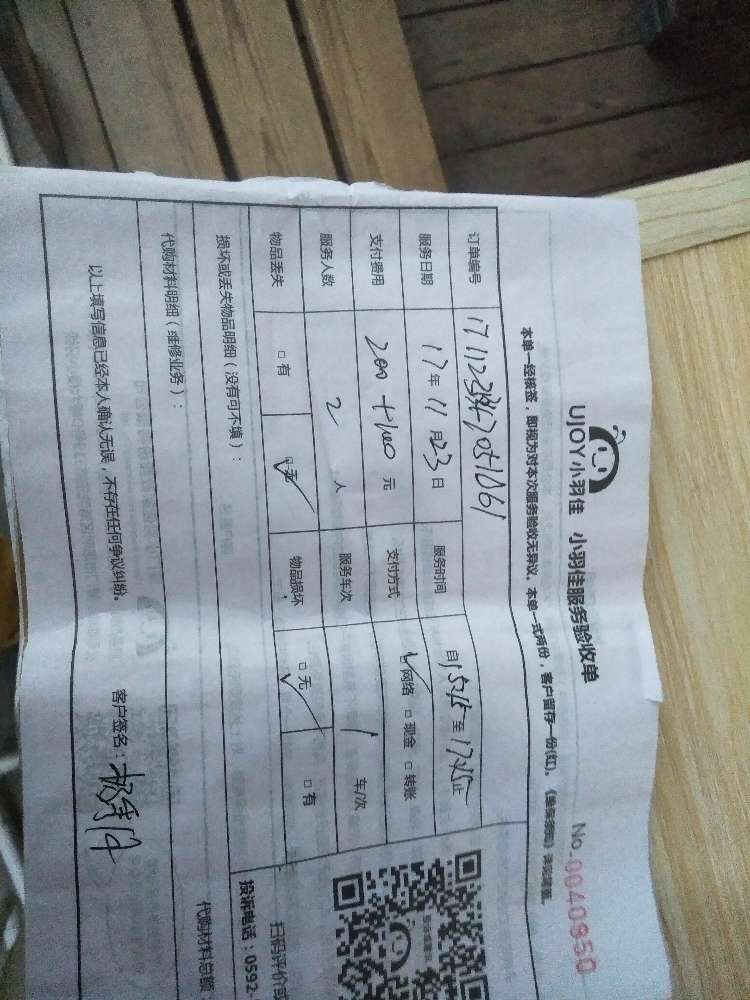 UJOY小羽佳 小羽佳服务验收单
No.0040850
本单一经核签，即视为对本次服务验收无异议。本单一式两份，客户留存一份(红)。
订单编号
服务日期 17年11月23日 服务时间 自 至 止
支付费用 200+ 元 支付方式 网络 □现金 □转账
服务人数 2 人 服务车次 1 车/次
物品丢失 □有 □无 物品损坏 □无 □有
损坏或丢失物品明细（没有可不填）：
代购材料明细（维修业务）：
代购材料总额
以上填写信息已经本人确认无误，不存在任何争议纠纷。
客户签名：
扫码评价
投诉电话：0592-